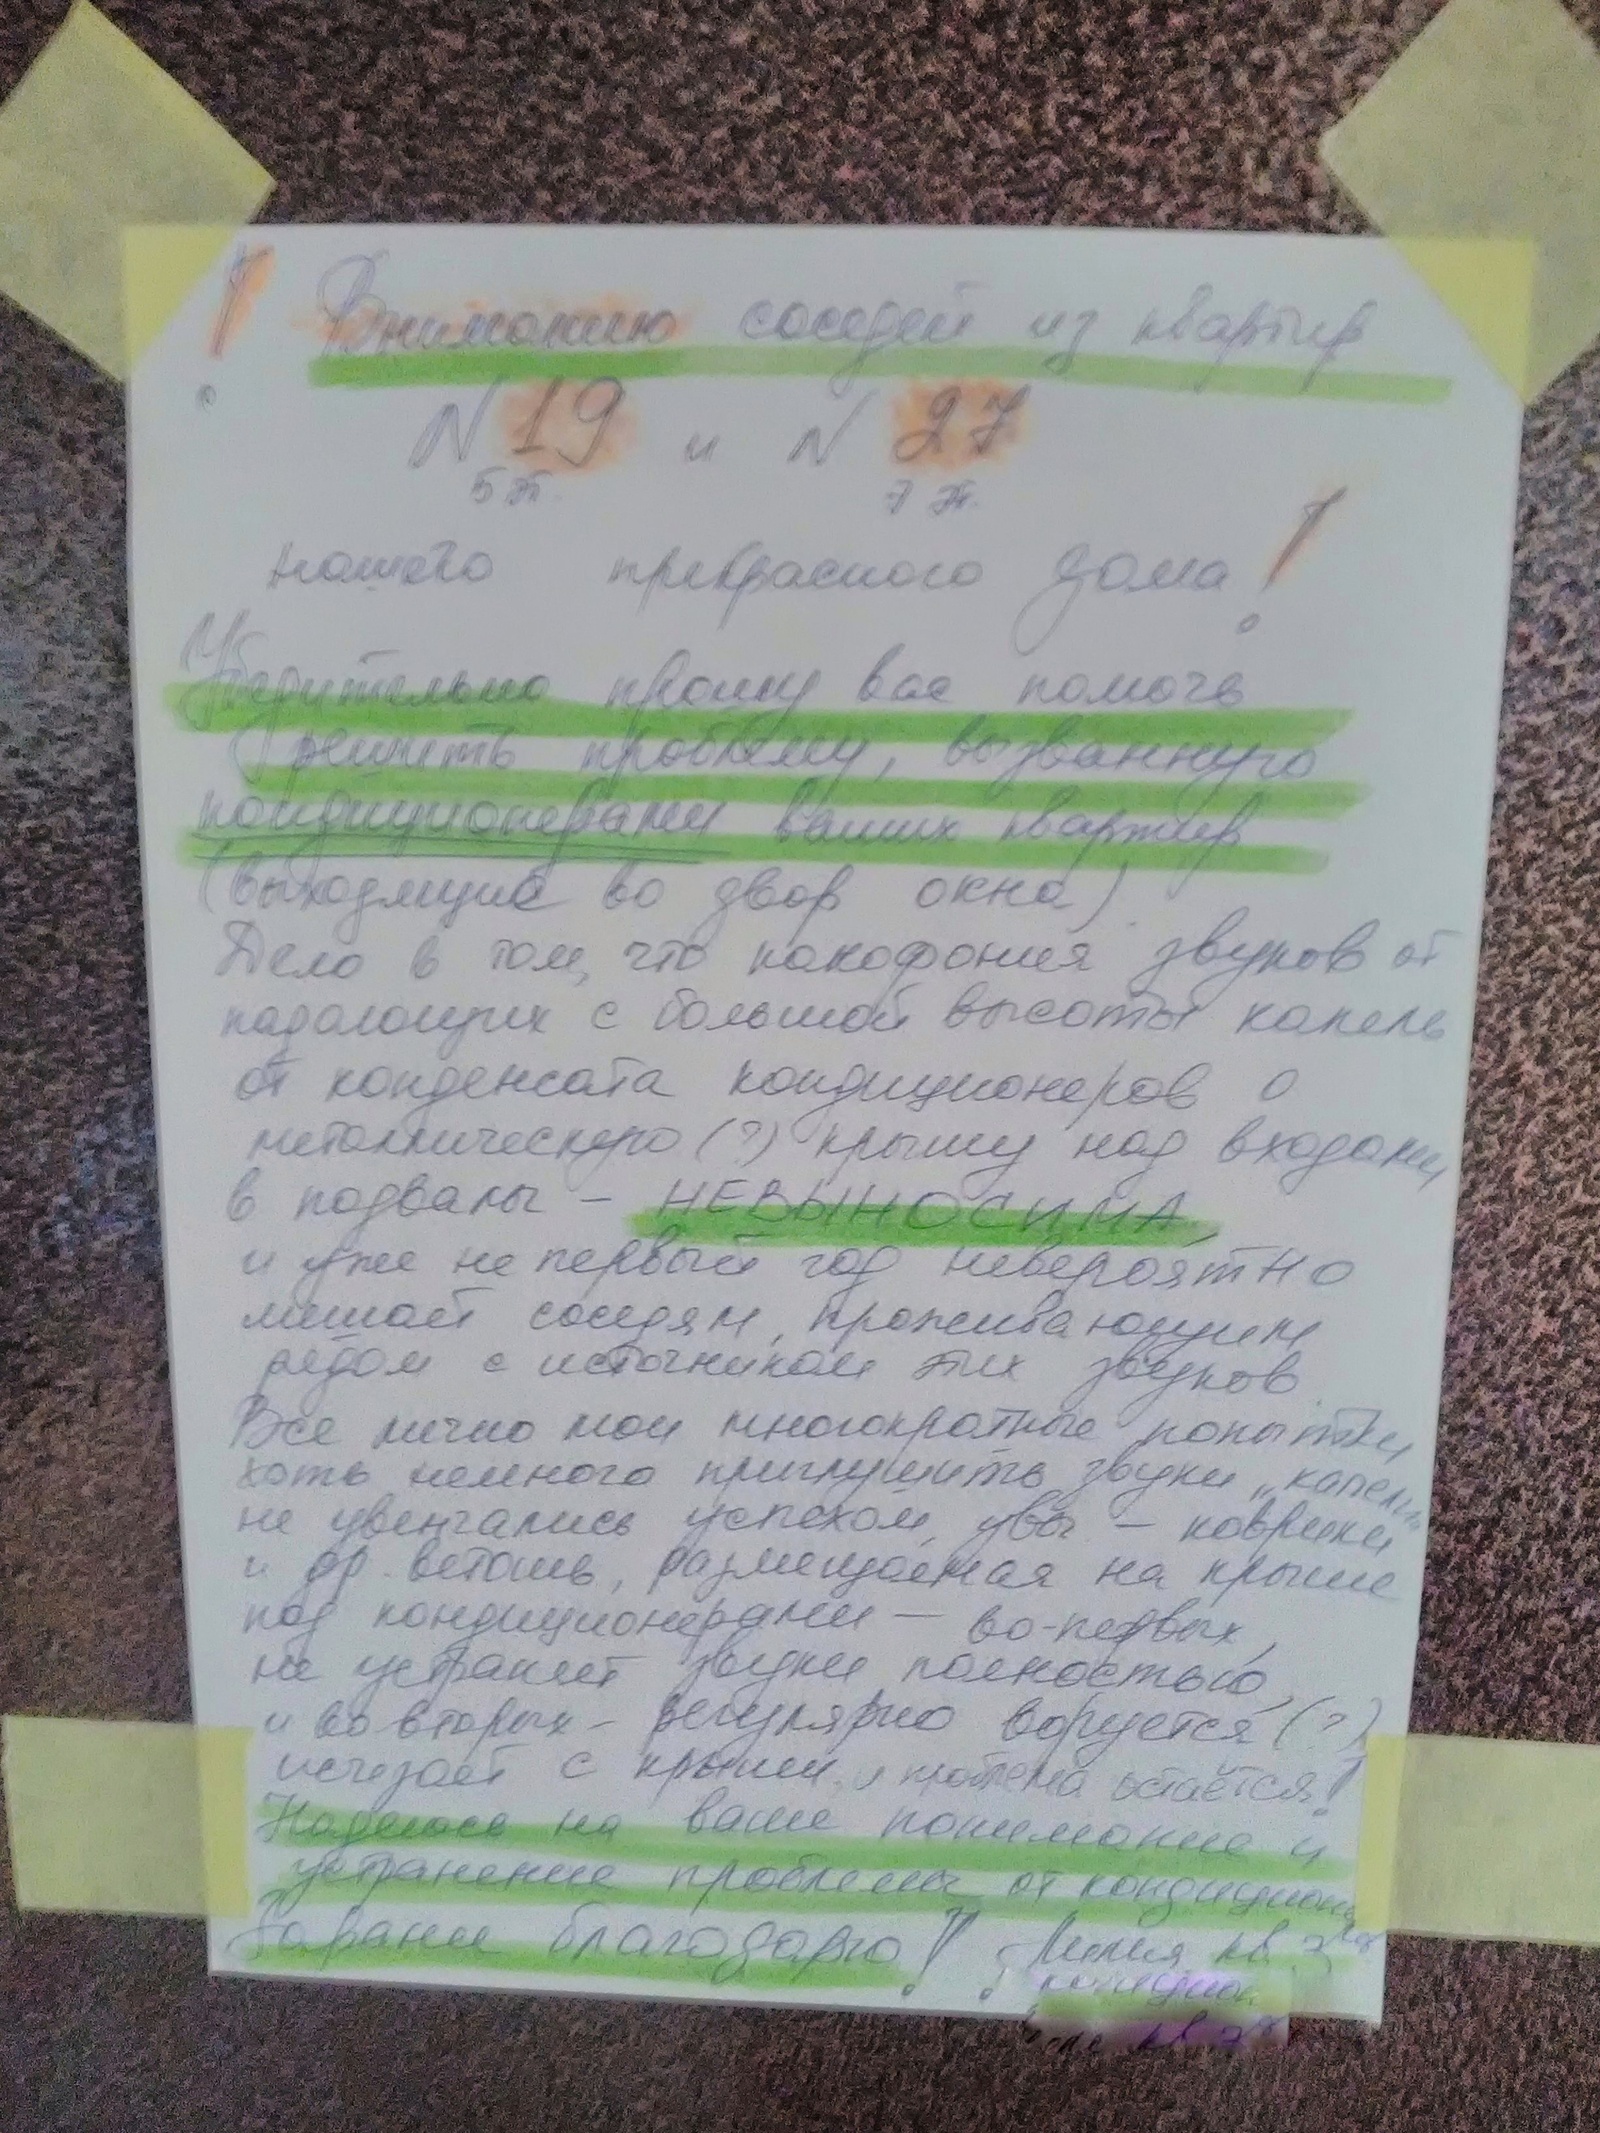 ! Вниманию соседей из квартир
N 19 и N 27
5 эт. 7 эт.
нашего прекрасного дома!
Убедительно прошу вас помочь
решить проблему, вызванную
кондиционерами ваших квартир
(выходящие во двор окна).
Дело в том, что какофония звуков от
падающих с большой высоты капель
от конденсата кондиционеров о
металлическую (?) крышу над входами
в подвалы – НЕВЫНОСИМА,
и уже не первый год невероятно
мешает соседям, проживающим
рядом с источником этих звуков.
Все лично мои многократные попытки
хоть немного приглушить звуки „капели"
не увенчались успехом, увы – коврики
и др. ветошь, размещаемая на крыше
под кондиционерами – во-первых,
не устраняет звуки полностью,
и во вторых – регулярно воруется (?)
исчезает с крыши, и проблема остаётся!
Надеюсь на ваше понимание и
устранение проблемы от кондиционе
Заранее благодарю! Лилия кв. 7
кв. 7